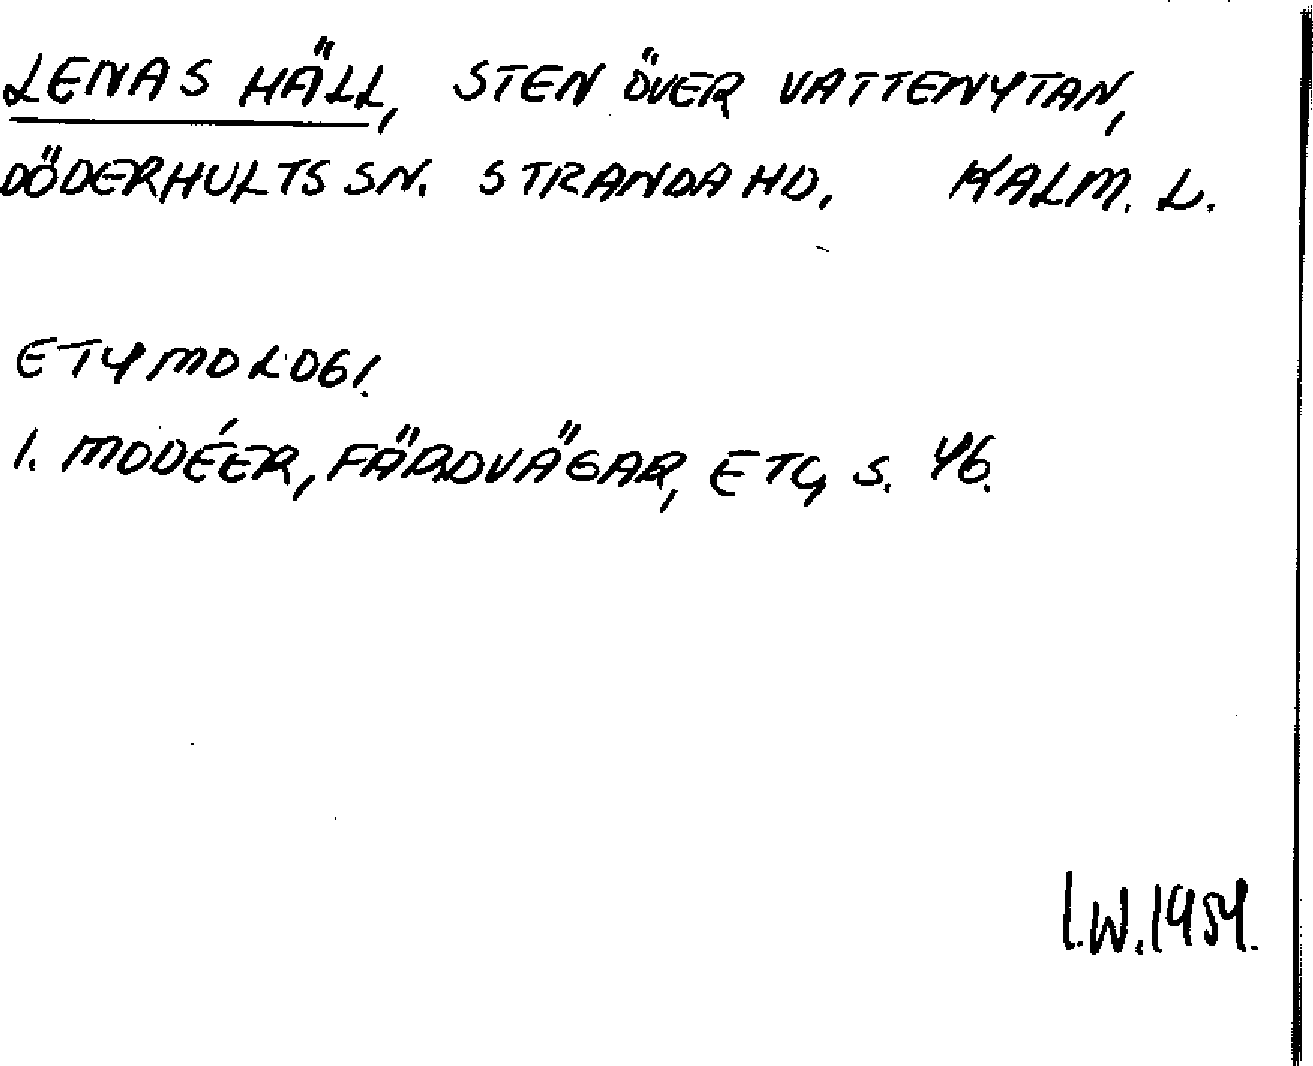 LENAS HÄLL, STEN ÖVER VATTENYTAN,
DÖDERHULTS SN. STRANDA HD. KALM. L.
ETYMOLOGI.
1. MODÉER, FÄRDVÄGAR, ETC, S. 46.
I.W. 1954.